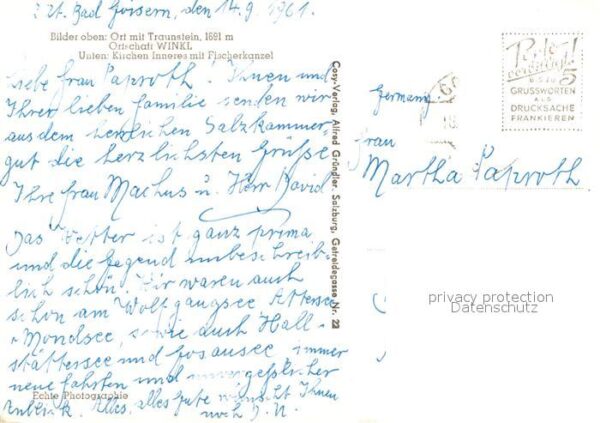 z. Zt. Bad Goisern, den 14.9.1961.
Bilder oben: Ort mit Traunstein, 1691 m
Ortschaft WINKL
Unten: Kirchen Inneres mit Fischerkanzel
Liebe Frau Paproth. Ihnen und
Ihrer lieben Familie senden wir
aus dem herrlichen Salzkammer-
gut die herzlichsten Grüße
Ihre Frau Machus u. Herr David
Das Wetter ist ganz prima
und die Gegend unbeschreib-
lich schön. Wir waren auch
schon am Wolfgangsee, Attersee
Mondsee, sowie auch Hall-
stättersee und Gosausee, immer
neue Fahrten und unvergeßlicher
Anblick. Alles, alles Gute wünscht Ihnen
noch
Echte Photographie
Cosy-Verlag, Alfred Gründler, Salzburg, Getreidegasse Nr. 22
Porto-
vorteil!
5
GRUSSWORTEN
ALS
DRUCKSACHE
FRANKIEREN
Germany
Frau
Martha Paproth
privacy protection
Datenschutz